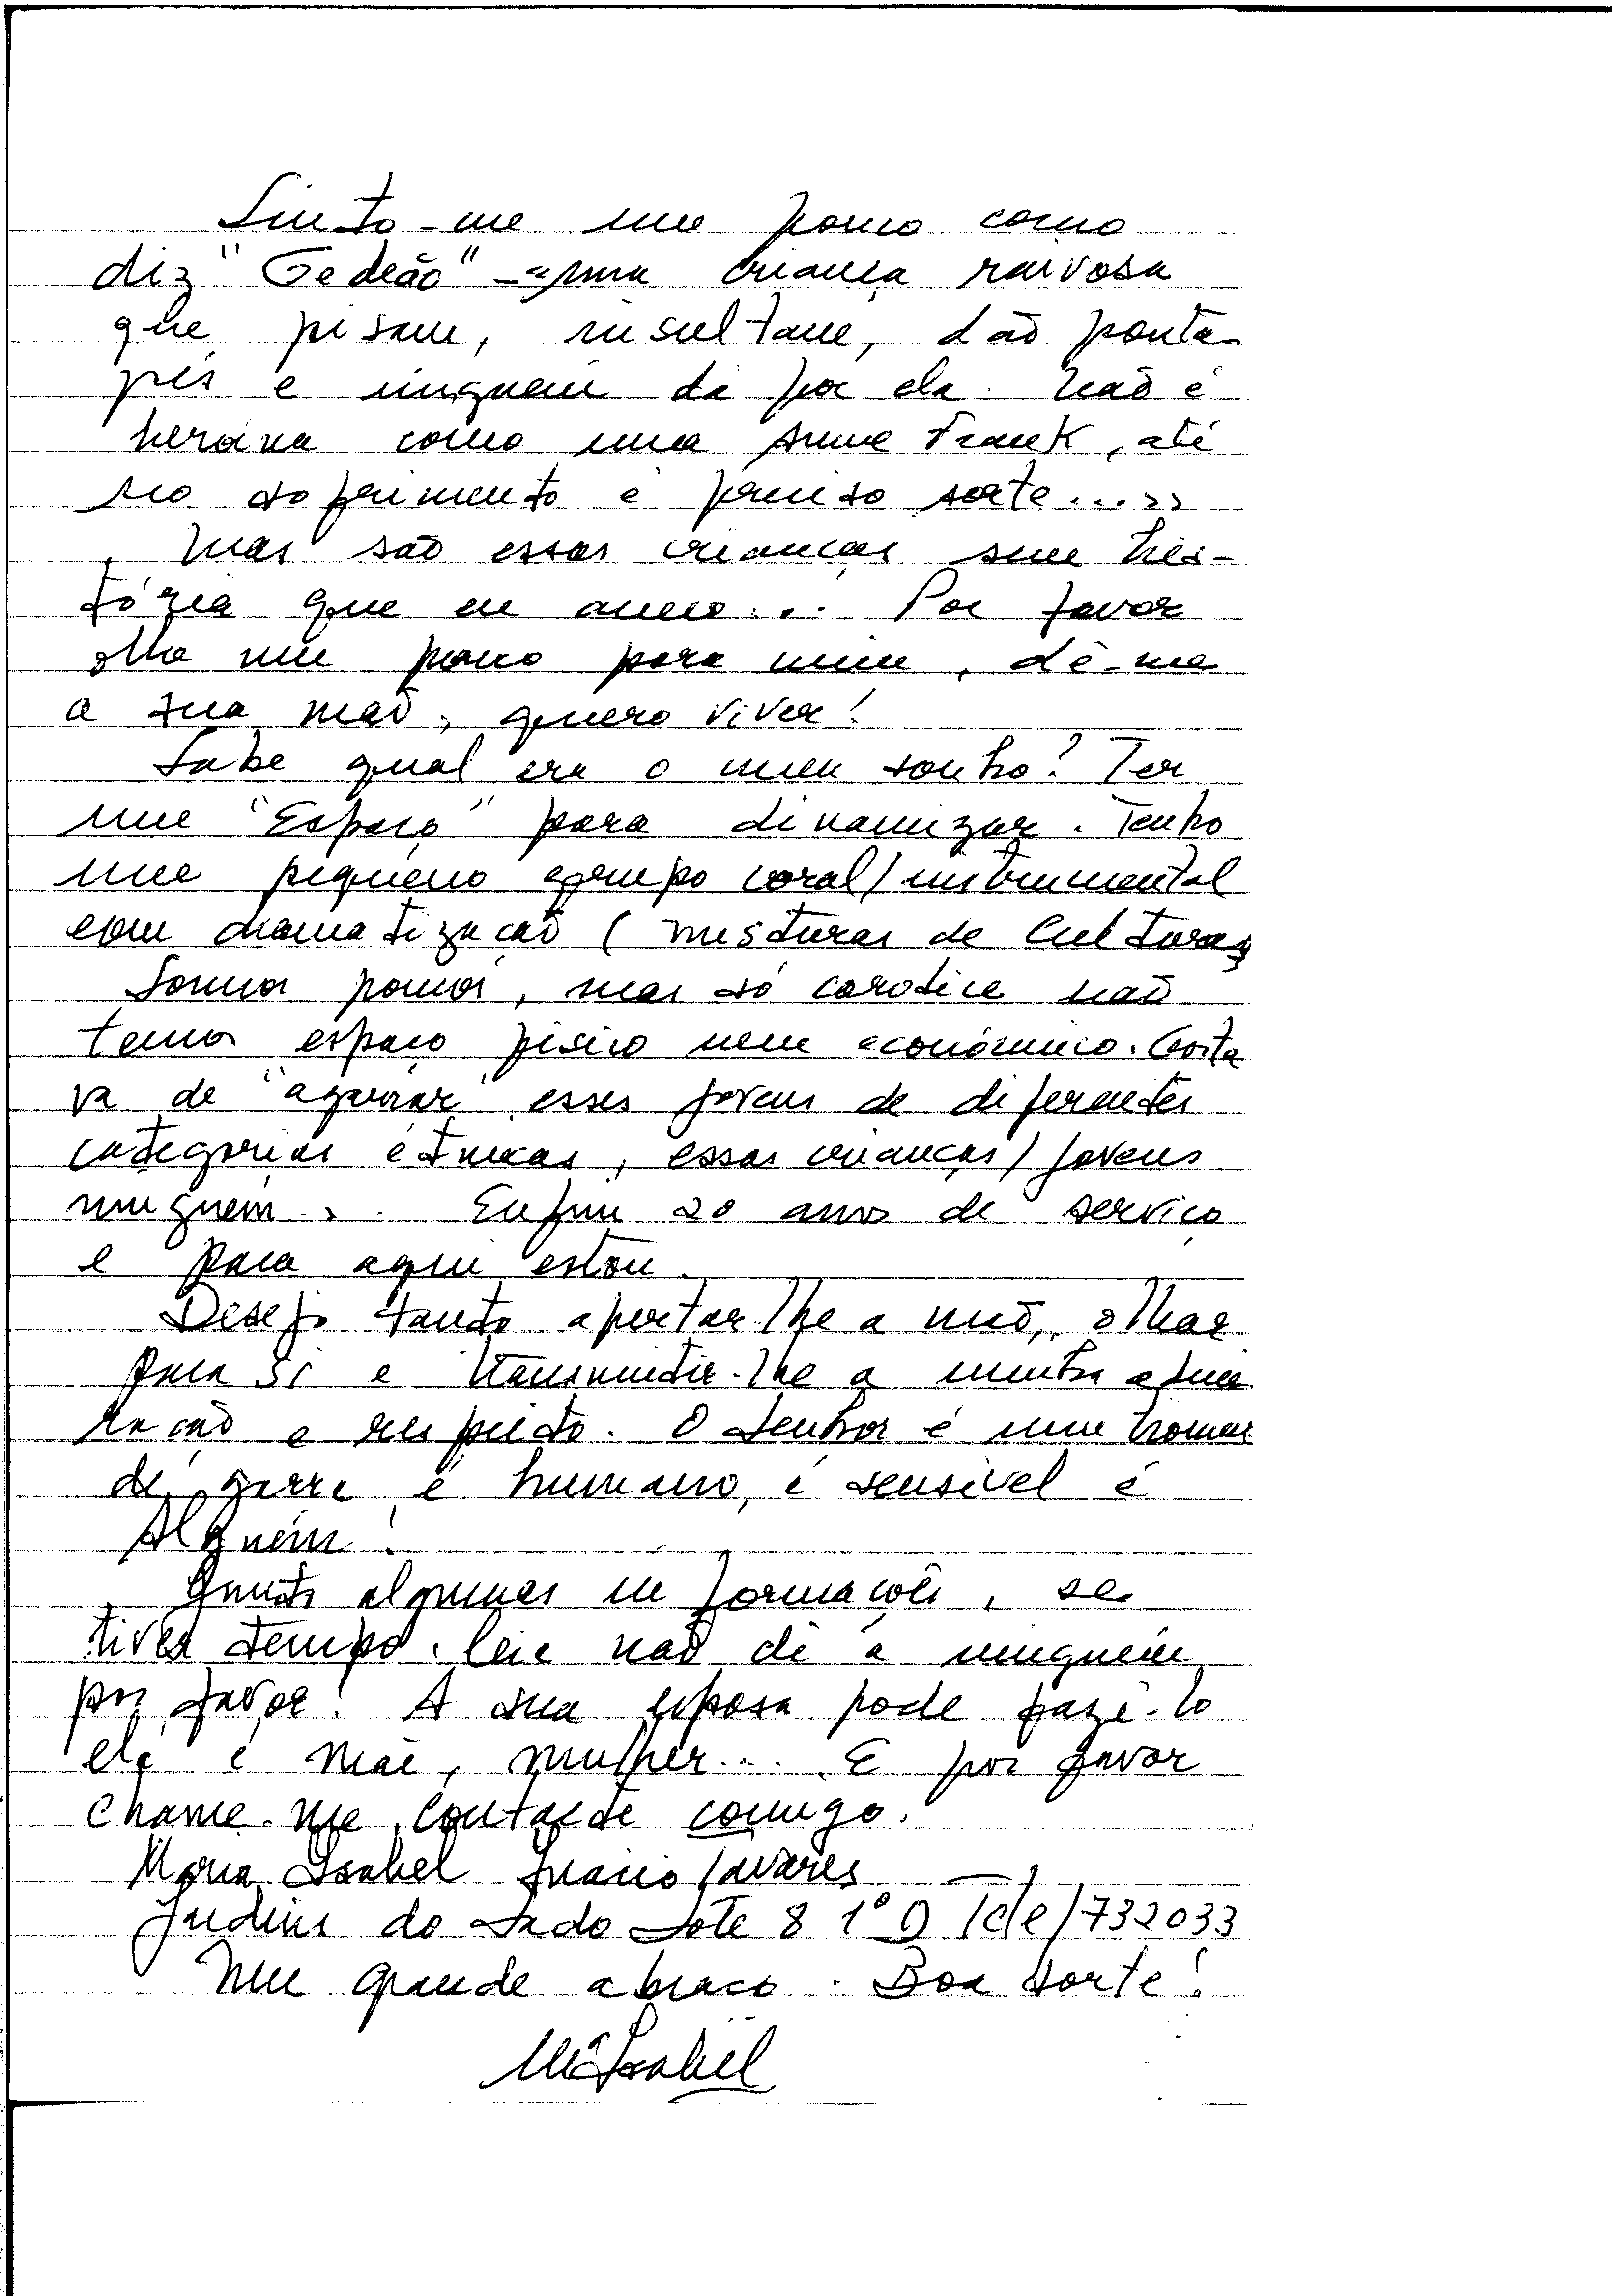 Sinto-me um pouco como
diz "Gedeão" - "uma criança raivosa
que pisam, insultam, dão ponta-
pés e ninguém dá por ela. Não é
heroína como uma Anne Frank, até
no sofrimento é preciso sorte...»
Mas são essas crianças sem his-
tória que eu amo... Por favor
olhe um pouco para mim, dê-me
a sua mão, quero viver!
Sabe qual era o meu sonho? Ter
um "Espaço" para dinamizar. Tenho
um pequeno grupo coral/instrumental
com dramatização (misturas de Culturas
Somos poucos, mas só carolice não
temos espaço físico nem económico. Gosta
va de "agarrar" esses jovens de diferentes
categorias étnicas, essas crianças/jovens
ninguém... Enfim 20 anos de serviço
e para aqui estou.
Desejo tanto apertar-lhe a mão, olhar
para si e transmitir-lhe a minha admi
ração e respeito. O Senhor é um homem
de garra é humano, é sensível é
Alguém!
Junto algumas informações, se
tiver tempo. Leia não dê a ninguém
por favor! A sua esposa pode fazê-lo
ela é mãe, mulher... E por favor
chame-me, contacte comigo.
Maria Isabel Tavares
Jardins do Sado Lote 8 1º D Tele/732033
Um grande abraço. Boa sorte!
Mª Isabel